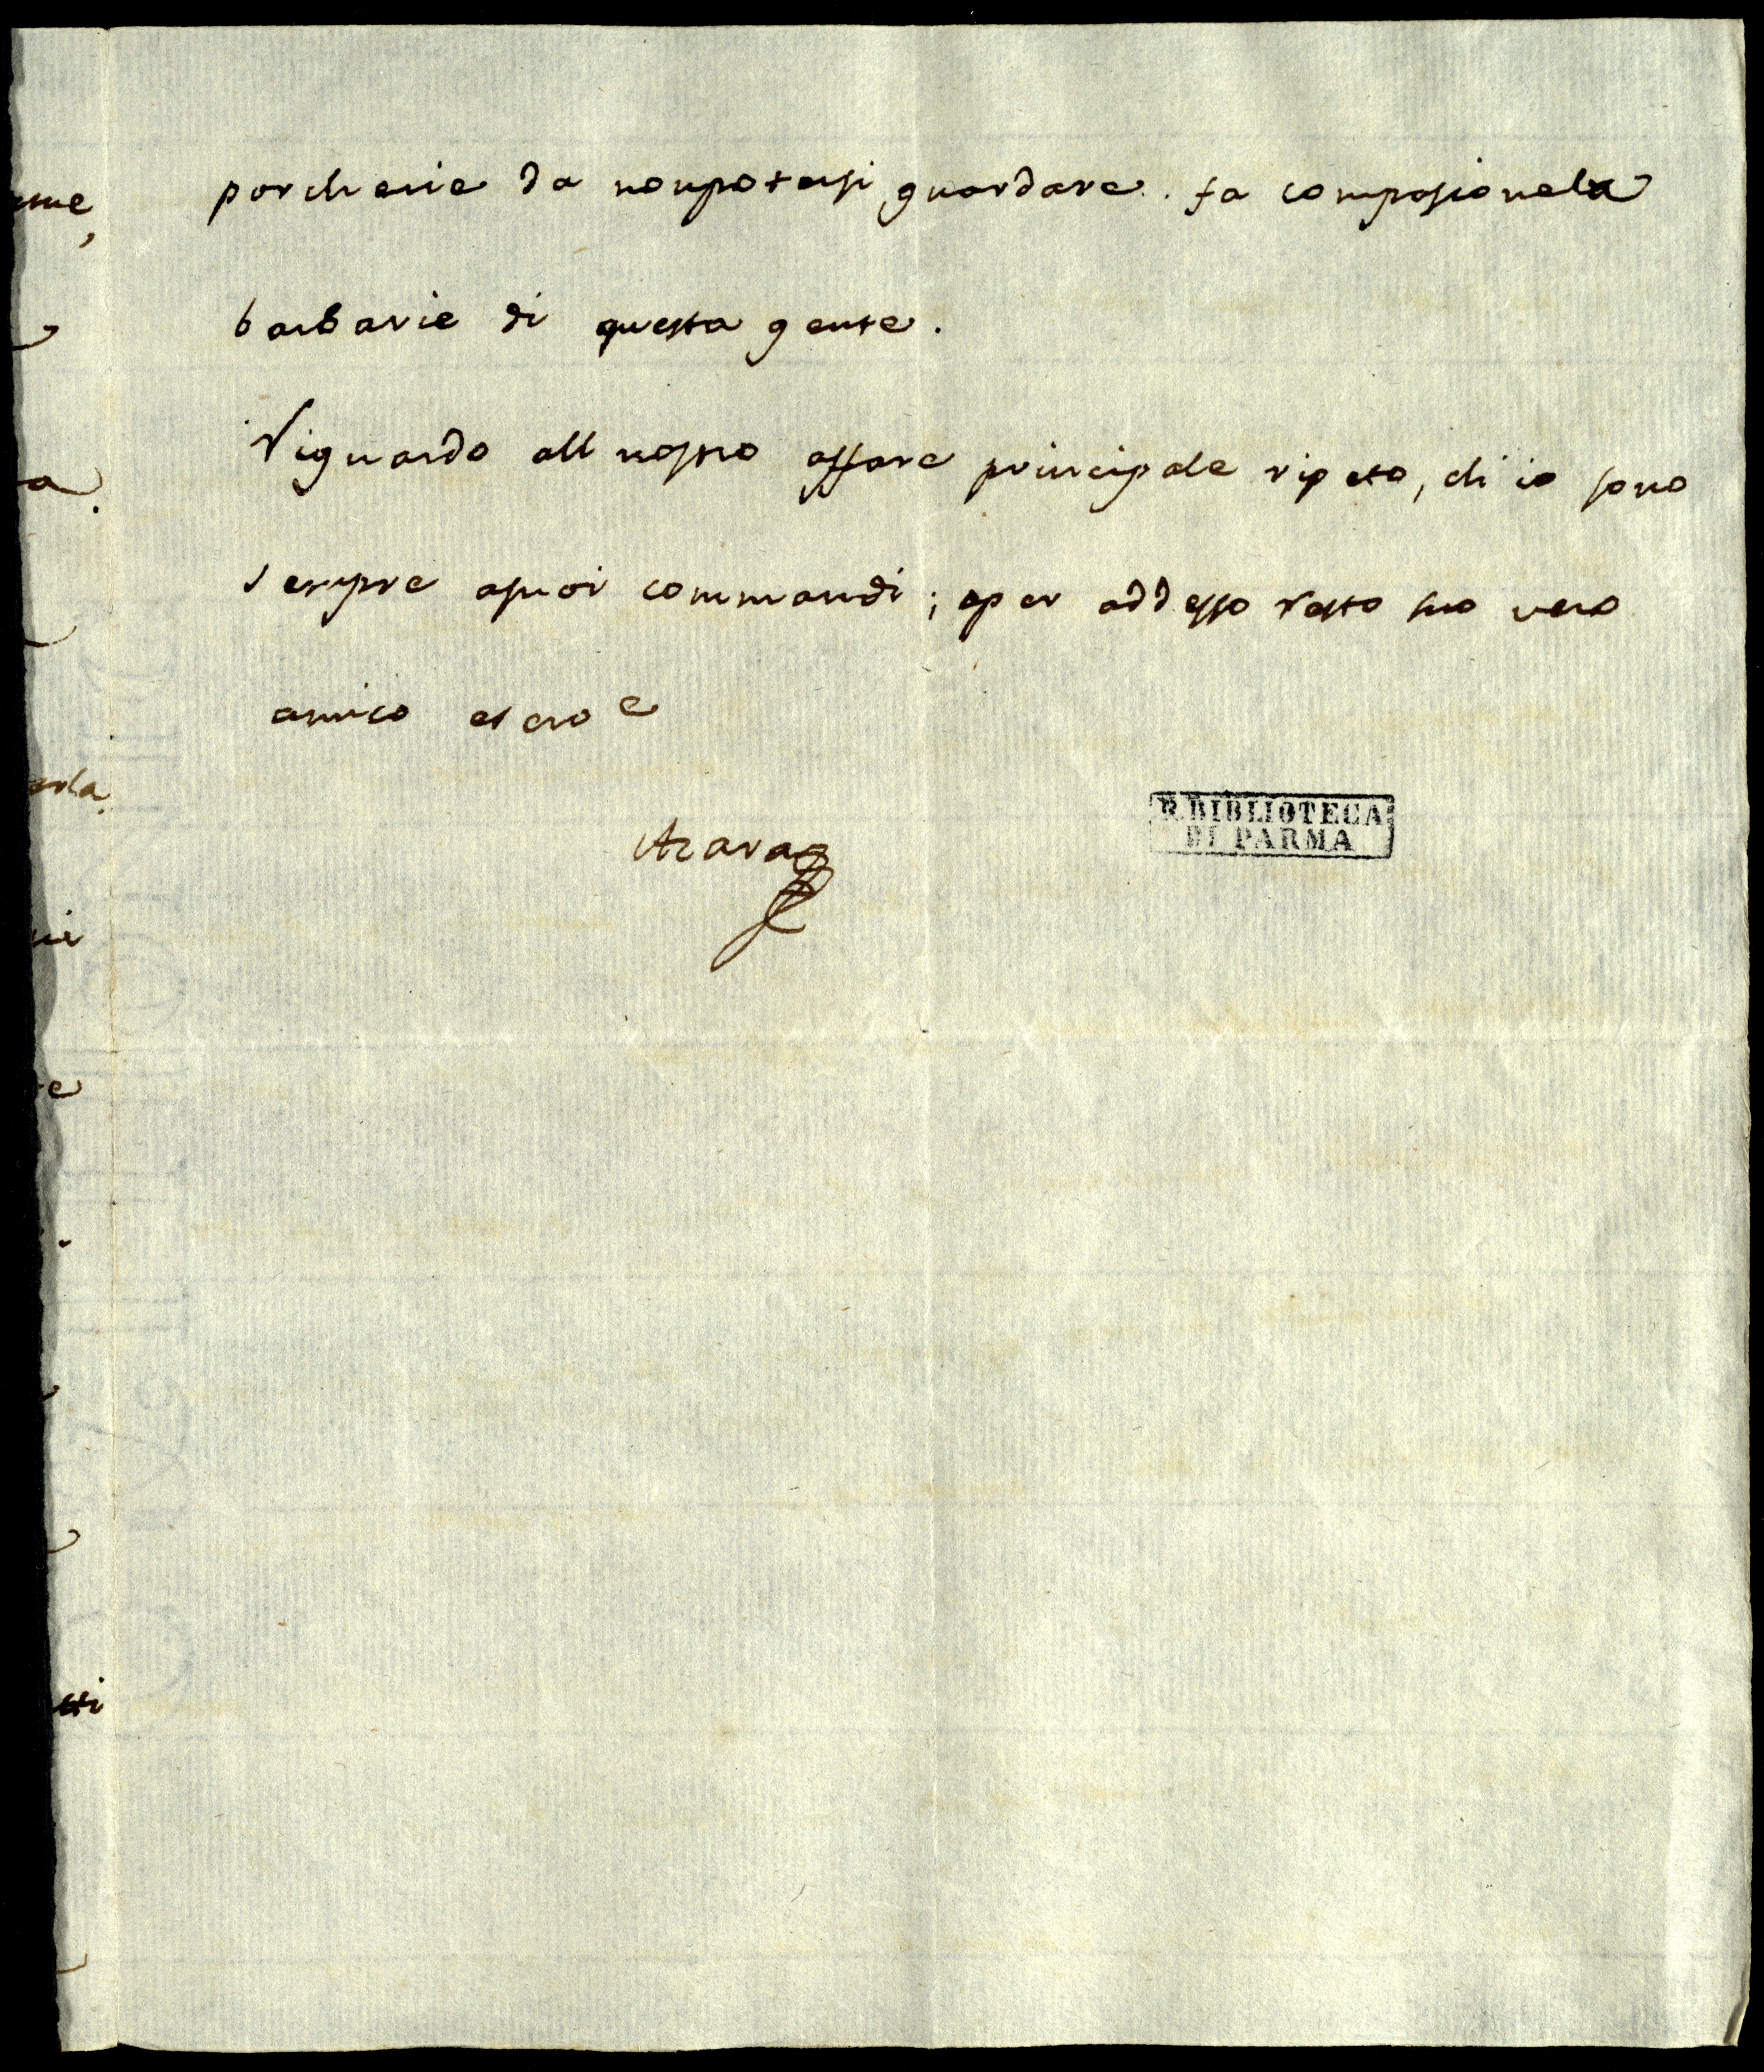 porcherie da nonpotersi guardare. fa compasionela
barbarie di questa gente.
Riguardo all nostro affare principale ripeto, ch'io sono
sempre asuoi commandi; eper addesso resto suo vero
amico et cro e
Azara
R. BIBLIOTECA
DI PARMA